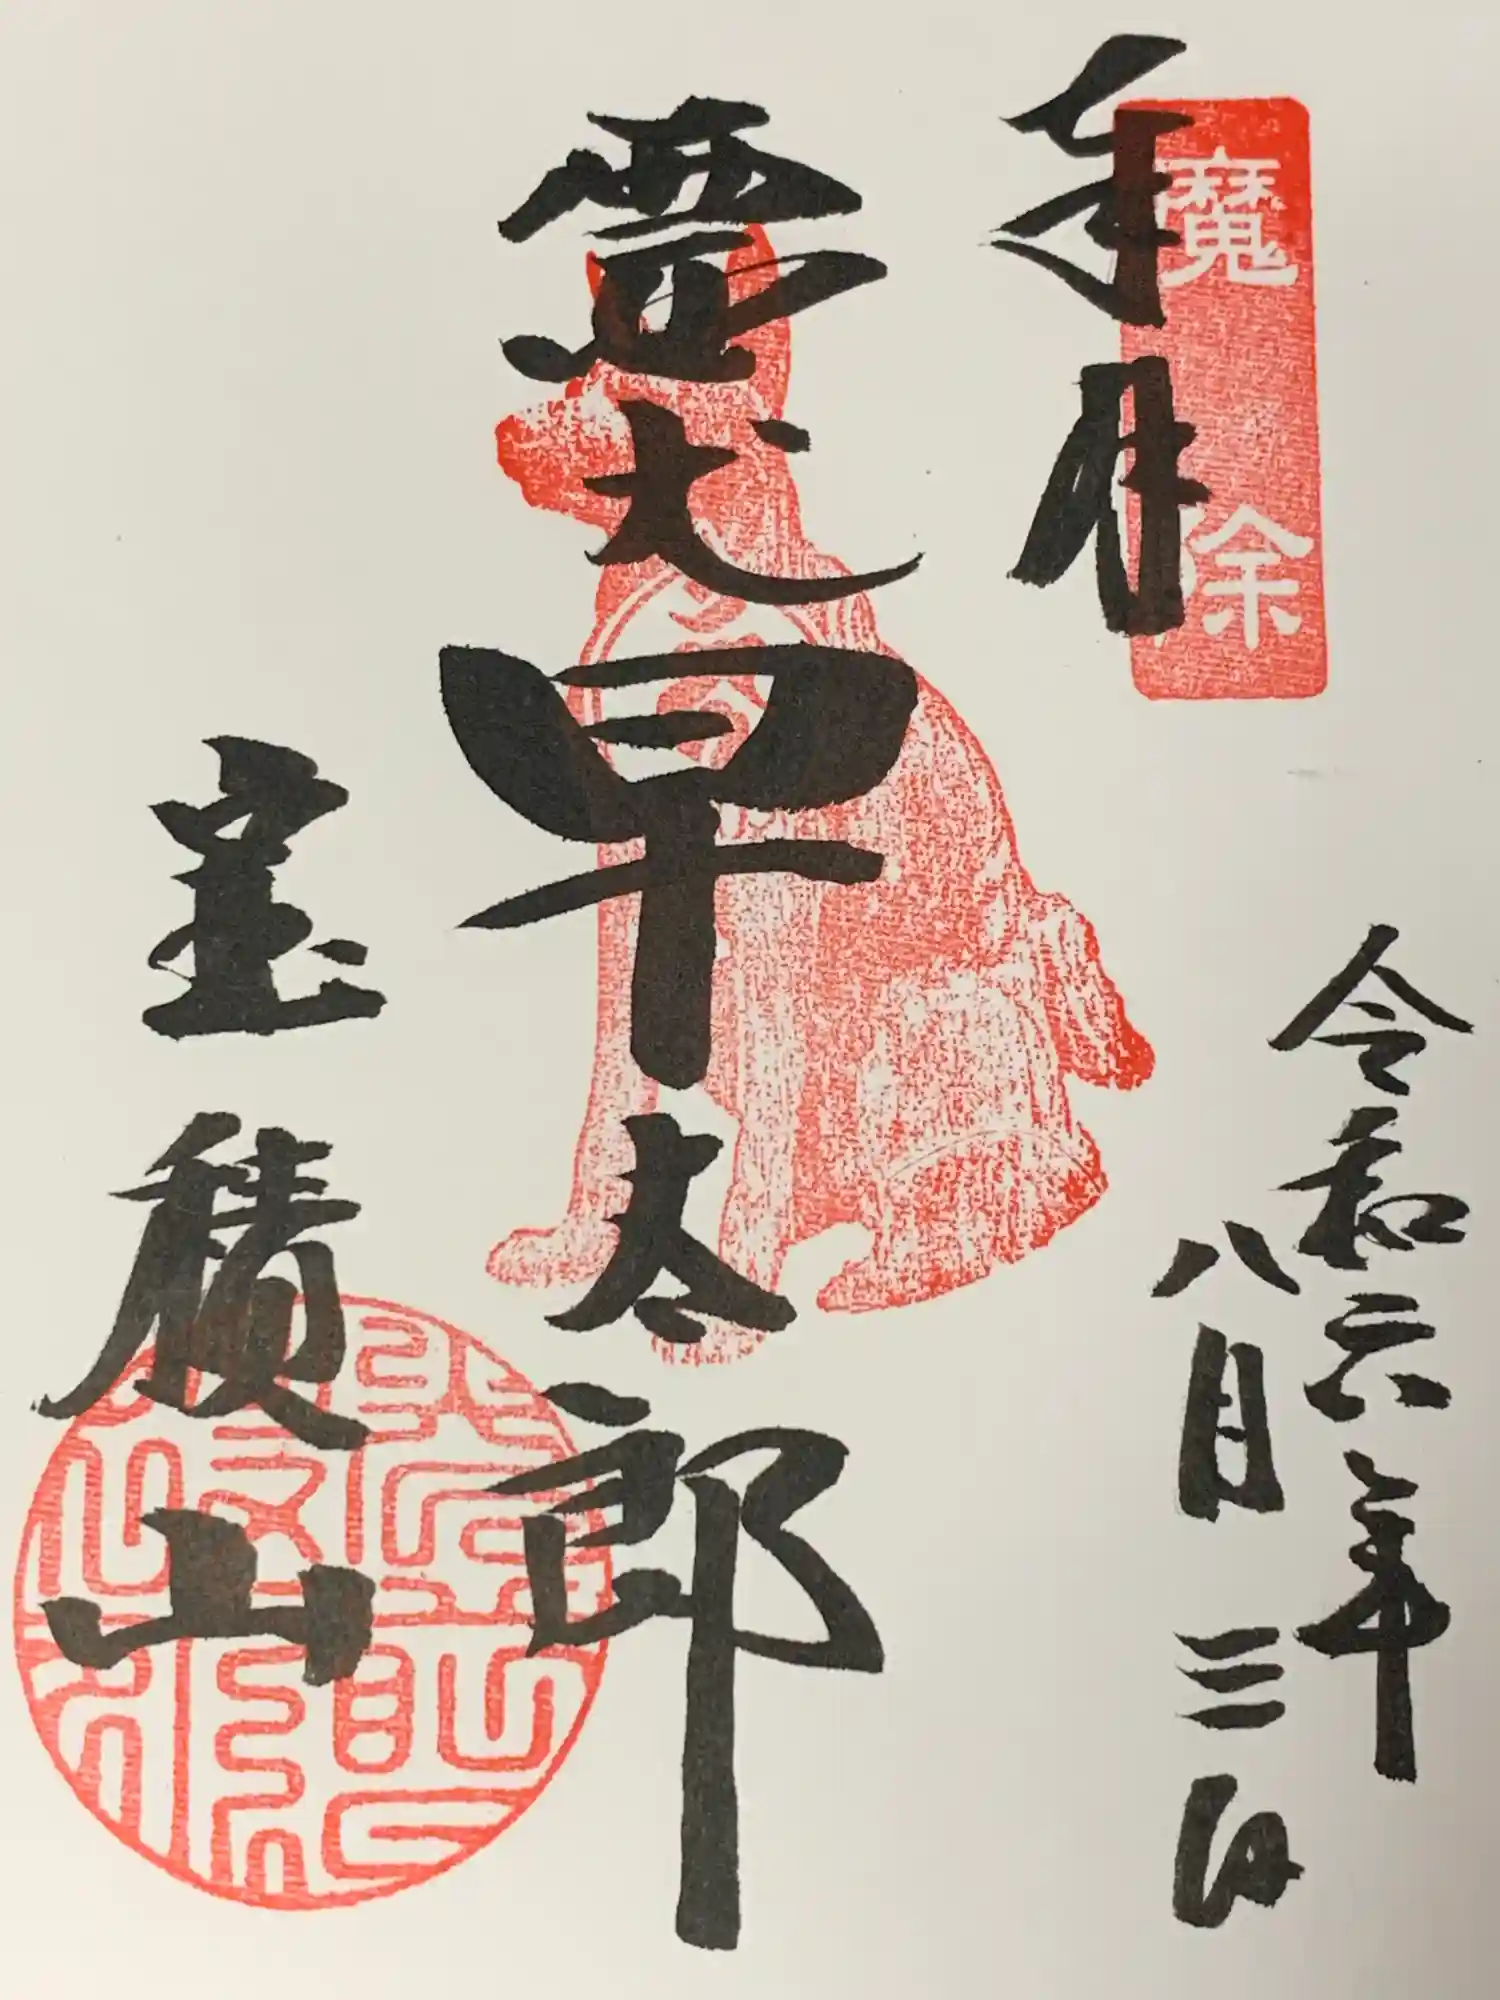 奉拝
魔除
令和六年
八月三日
霊犬早太郎
宝積山